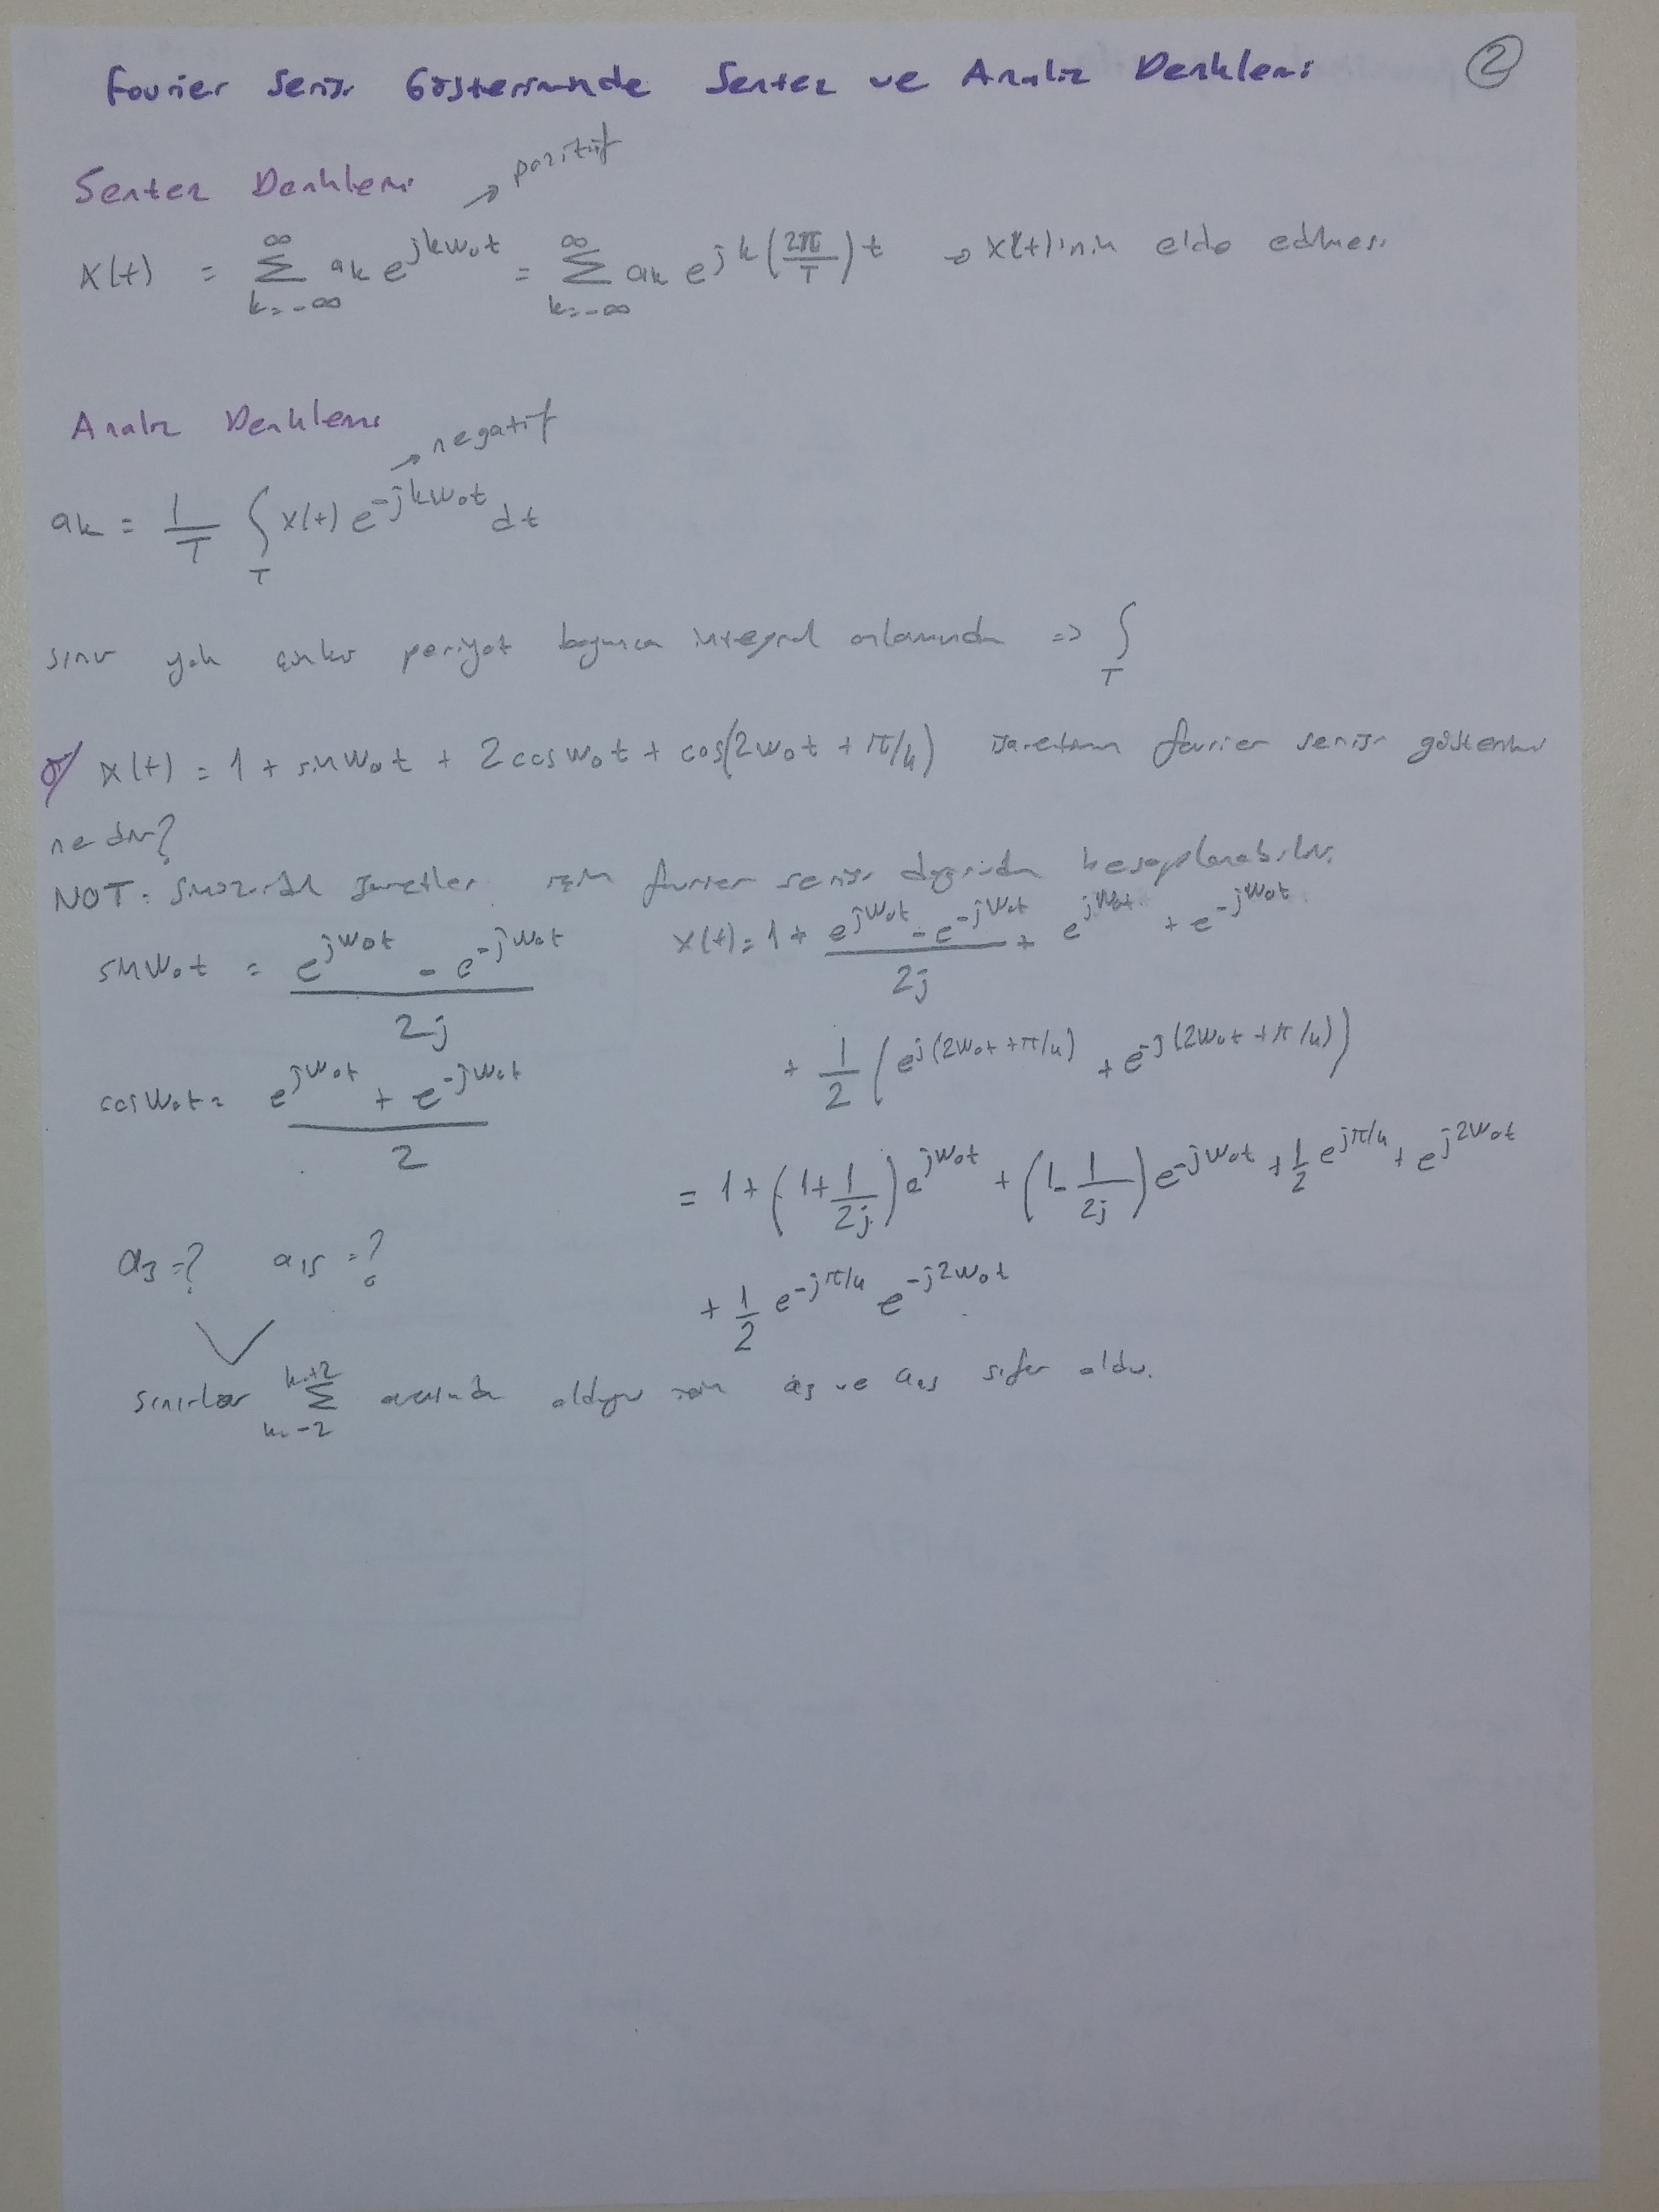 Fourier Serisi Gösteriminde Sentez ve Analiz Denklemi ②
Sentez Denklemi → pozitif
x(t) = ∞ Σ k=-∞ ak e^jkw₀t = ∞ Σ k=-∞ ak e^jk(2π/T)t → x(t)'nin elde edilmesi
Analiz Denklemi → negatif
ak = 1/T ∫T x(t) e^-jkw₀t dt
sınır yok çünkü periyot boyunca integral anlamında => ∫T
Ör/ x(t) = 1 + sinw₀t + 2cosw₀t + cos(2w₀t + π/4) işaretinin fourier serisi gösterimi
nedir?
NOT: Sinüzoidal işaretler için fourier serisi doğrudan hesaplanabilir.
sinw₀t = (e^jw₀t - e^-jw₀t) / 2j
x(t) = 1 + (e^jw₀t - e^-jw₀t) / 2j + e^jw₀t + e^-jw₀t
+ 1/2 (e^j(2w₀t+π/4) + e^-j(2w₀t+π/4))
cosw₀t = (e^jw₀t + e^-jw₀t) / 2
= 1 + (1 + 1/2j) e^jw₀t + (1 - 1/2j) e^-jw₀t + 1/2 e^jπ/4 + e^j2w₀t
+ 1/2 e^-jπ/4 e^-j2w₀t
a3 = ? a15 = ?
sınırlar k=+2 Σ k=-2 arasında olduğu için a3 ve a15 sıfır oldu.